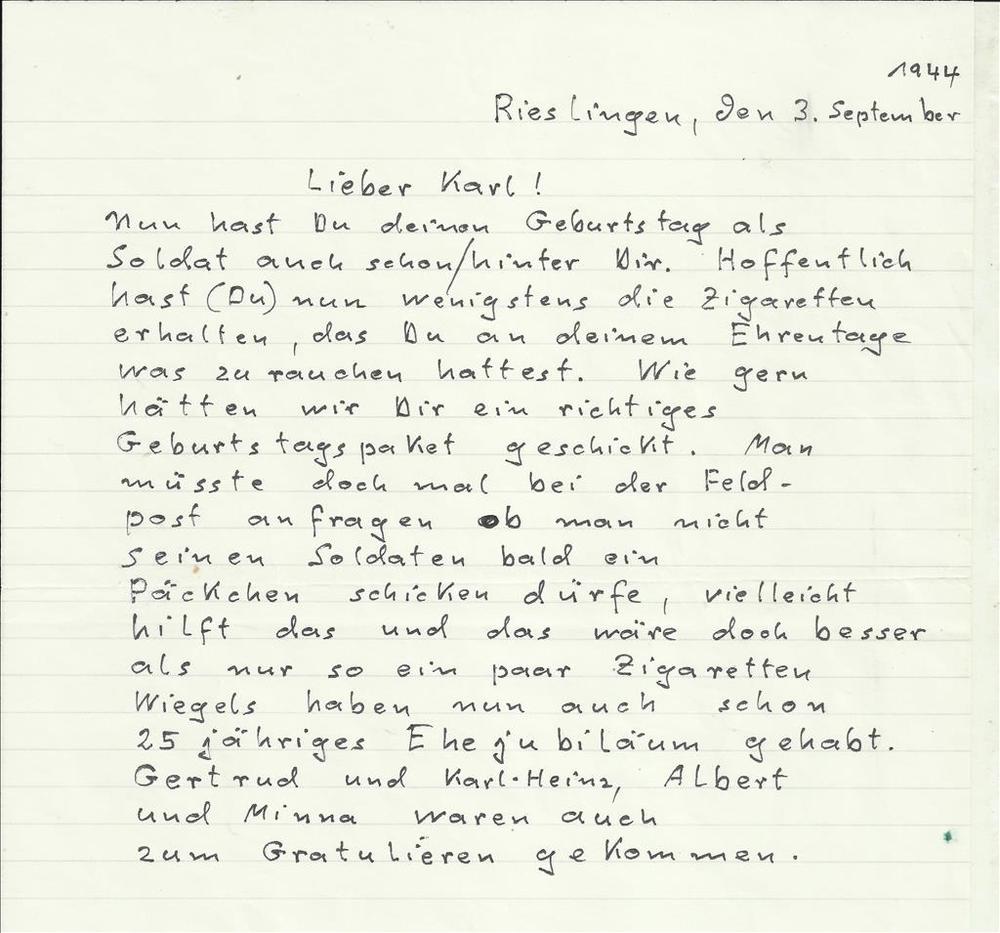 1944
Rieslingen, den 3. September
Lieber Karl!
Nun hast Du deinen Geburtstag als
Soldat auch schon/hinter Dir. Hoffentlich
hast (Du) nun wenigstens die Zigaretten
erhalten, das Du an deinem Ehrentage
was zu rauchen hattest. Wie gern
hätten wir Dir ein richtiges
Geburtstagspaket geschickt. Man
müsste doch mal bei der Feld-
post anfragen ob man nicht
seinen Soldaten bald ein
Päckchen schicken dürfe, vielleicht
hilft das und das wäre doch besser
als nur so ein paar Zigaretten
Wiegels haben nun auch schon
25 jähriges Ehejubiläum gehabt.
Gertrud und Karl-Heinz, Albert
und Minna waren auch
zum Gratulieren gekommen.